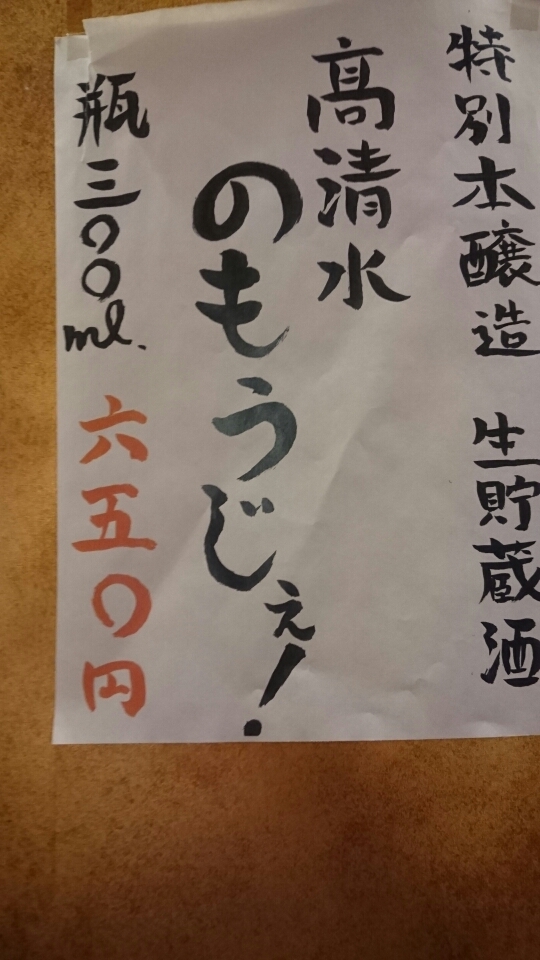 特別本醸造 生貯蔵酒
高清水
のもうじぇ!
瓶三〇〇ml.
六五〇円